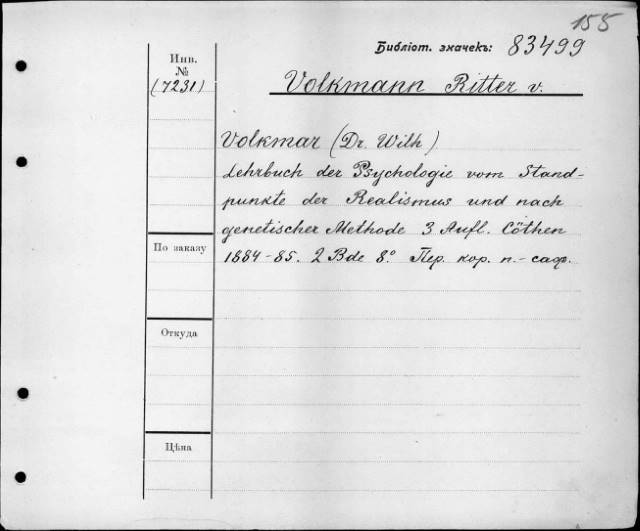 155
Библіот. значекъ: 83499
Инв.
№
(7231)
Volkmann Ritter v.
Volkmar (Dr. Wilh)
Lehrbuch der Psychologie vom Stand-
punkte der Realismus und nach
genetischer Methode 3 Aufl. Cöthen
1884-85. 2 Bde 8° Пер. кор. п.-саф.
По заказу
Откуда
Цѣна